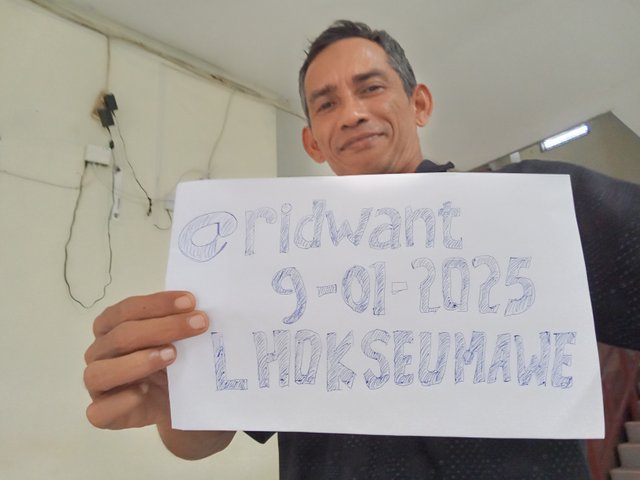 @ridwant
9-01-2025
LHOKSEUMAWE